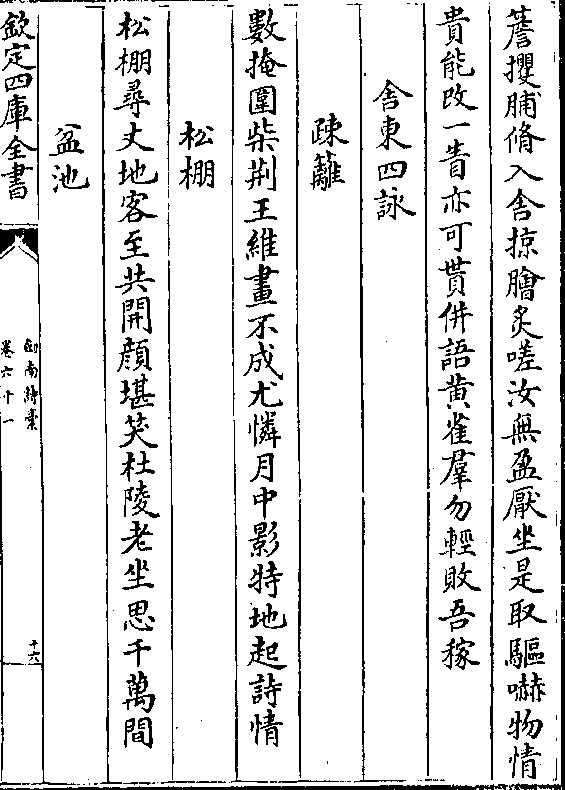 簷攫脯脩入舍掠膾炙嗟汝無盈厭坐是取驅嚇物情
貴能改一眚亦可貰併語黄雀羣勿輕敗吾稼
舍東四詠
疎籬
數掩圍柴荆王維畫不成尤憐月中影特地起詩情
松棚
松棚尋丈地客至共開顔堪笑杜陵老坐思千萬間
盆池
欽定四庫全書
劒南詩稾
卷六十一
十六